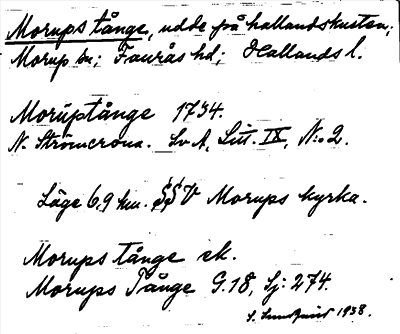 Morups tånge, udde på hallandskusten;
Morup sn; Faurås hd; Hallands l.
Moruptånge 1734.
N. Strömcrona. Sv A, Litt. IX, N:o 2.
Läge 6,9 km. SSV Morups kyrka.
Morups tånge ek.
Morups Tånge G.18, Sj: 274.
S. Lundquist 1938.